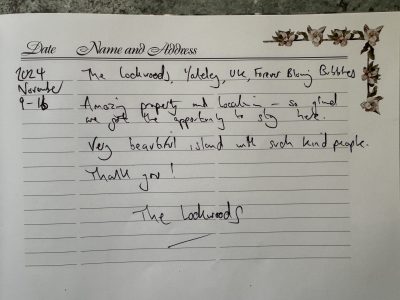 Date Name and Address
2024 The Lockwoods, Yateley, UK, Forever Blowing Bubbles
November
9-16 Amazing property and location - so glad
we got the opportunity to stay here.
Very beautiful island with such kind people.
Thank you!
The Lockwoods